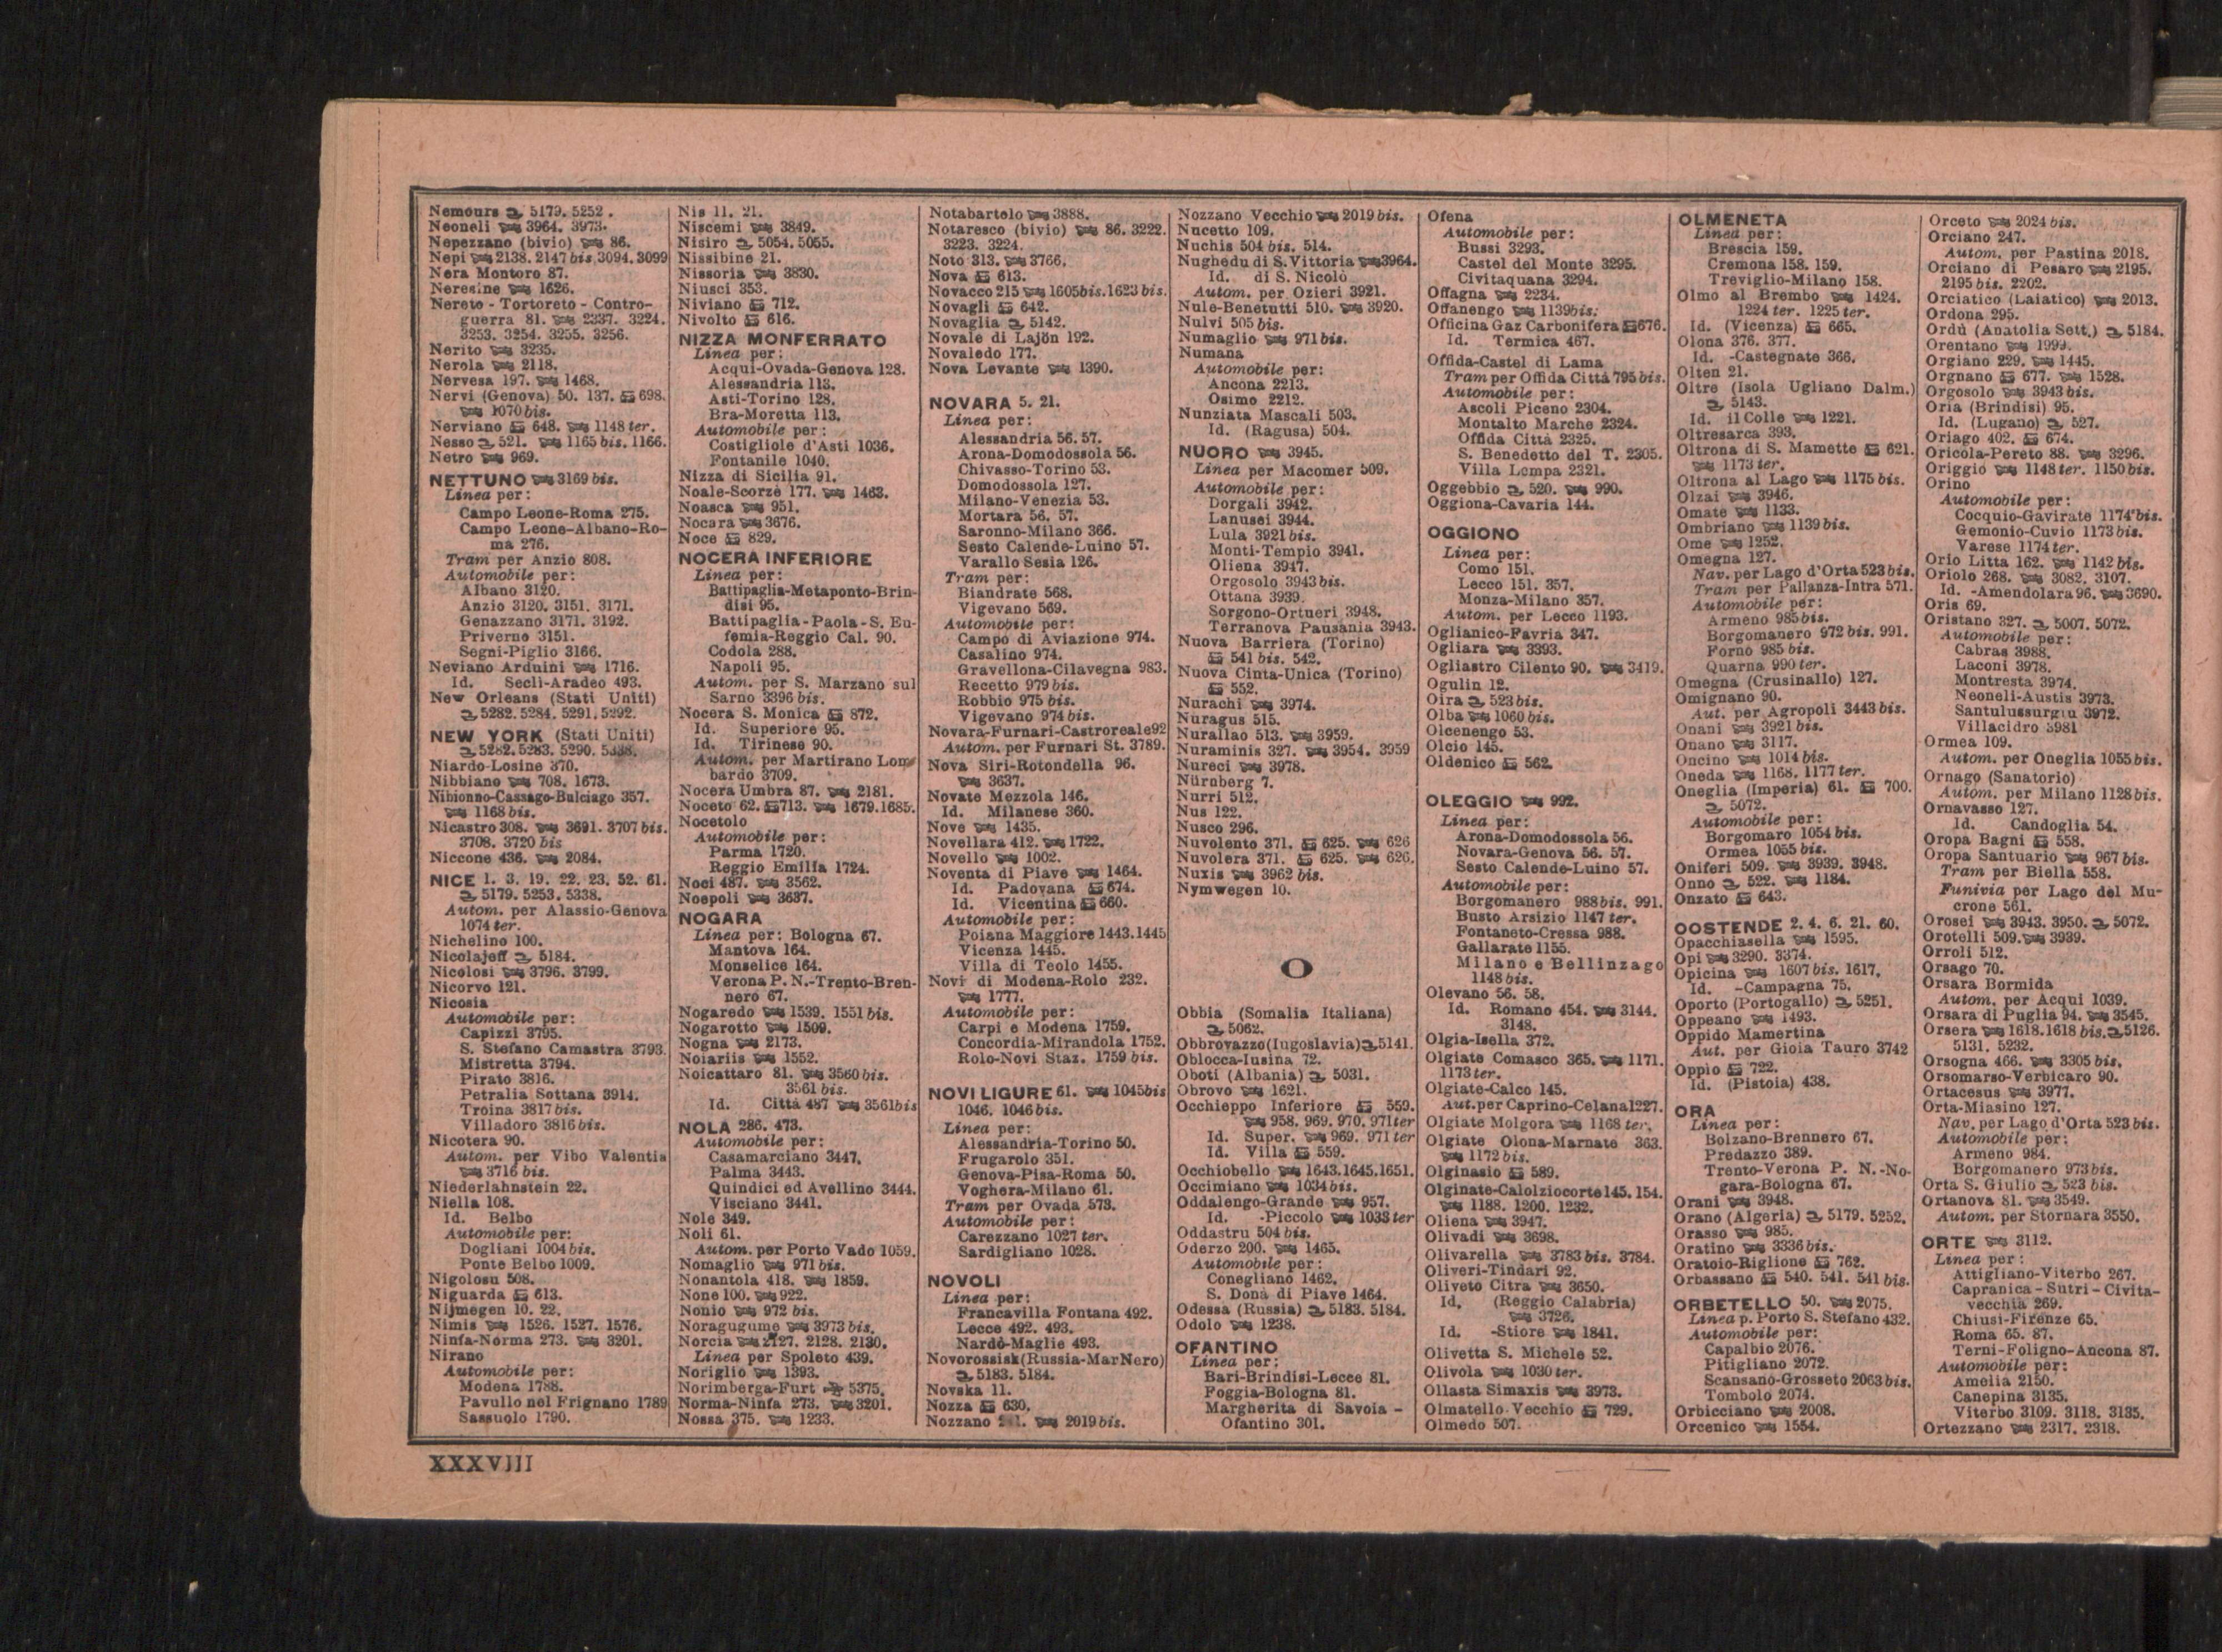 Nemours 5179. 5252.
Neoneli 3964. 3973.
Nepezzano (bivio) 86.
Nepi 2138. 2147 bis. 3094. 3099
Nera Montoro 87.
Neresine 1626.
Nereto - Tortoreto - Contro-
guerra 81. 2337. 3224.
3253. 3254. 3255. 3256.
Nerito 3235.
Nerola 2118.
Nervesa 197. 1468.
Nervi (Genova) 50. 137. 698.
1070 bis.
Nerviano 648. 1148 ter.
Nesso 521. 1165 bis. 1166.
Netro 969.
NETTUNO 3169 bis.
Linea per:
Campo Leone-Roma 275.
Campo Leone-Albano-Ro-
ma 276.
Tram per Anzio 808.
Automobile per:
Albano 3120.
Anzio 3120. 3151. 3171.
Genazzano 3171. 3192.
Priverno 3151.
Segni-Piglio 3166.
Neviano Arduini 1716.
Id. Secli-Aradeo 493.
New Orleans (Stati Uniti)
5282. 5284. 5291. 5292.
NEW YORK (Stati Uniti)
5282. 5283. 5290. 5338.
Niardo-Losine 370.
Nibbiano 708. 1673.
Nibionno-Cassago-Bulciago 357.
1168 bis.
Nicastro 308. 3691. 3707 bis.
3708. 3720 bis
Niccone 436. 2084.
NICE 1. 3. 19. 22. 23. 52. 61.
5179. 5253. 5338.
Autom. per Alassio-Genova
1074 ter.
Nichelino 100.
Nicolajeff 5184.
Nicolosi 3796. 3799.
Nicorvo 121.
Nicosia
Automobile per:
Capizzi 3795.
S. Stefano Camastra 3793.
Mistretta 3794.
Pirato 3816.
Petralia Sottana 3914.
Troina 3817 bis.
Villadoro 3816 bis.
Nicotera 90.
Autom. per Vibo Valentia
3716 bis.
Niederlahnstein 22.
Niella 108.
Id. Belbo
Automobile per:
Dogliani 1004 bis.
Ponte Belbo 1009.
Nigolosu 508.
Niguarda 613.
Nijmegen 10. 22.
Nimis 1526. 1527. 1576.
Ninfa-Norma 273. 3201.
Nirano
Automobile per:
Modena 1788.
Pavullo nel Frignano 1789
Sassuolo 1790.
Nis 11. 21.
Niscemi 3849.
Nisiro 5054. 5055.
Nissibine 21.
Nissoria 3830.
Niusci 353.
Niviano 712.
Nivolto 616.
NIZZA MONFERRATO
Linea per:
Acqui-Ovada-Genova 128.
Alessandria 113.
Asti-Torino 128.
Bra-Moretta 113.
Automobile per:
Costigliole d'Asti 1036.
Fontanile 1040.
Nizza di Sicilia 91.
Noale-Scorzè 177. 1463.
Noasca 951.
Nocara 3676.
Noce 829.
NOCERA INFERIORE
Linea per:
Battipaglia-Metaponto-Brin-
disi 95.
Battipaglia - Paola - S. Eu-
femia-Reggio Cal. 90.
Codola 288.
Napoli 95.
Autom. per S. Marzano sul
Sarno 3396 bis.
Nocera S. Monica 872.
Id. Superiore 95.
Id. Tirinese 90.
Autom. per Martirano Lom-
bardo 3709.
Nocera Umbra 87. 2181.
Noceto 62. 713. 1679. 1685.
Nocetolo
Automobile per:
Parma 1720.
Reggio Emilia 1724.
Noci 487. 3562.
Noepoli 3637.
NOGARA
Linea per: Bologna 67.
Mantova 164.
Monselice 164.
Verona P. N.-Trento-Bren-
nero 67.
Nogaredo 1539. 1551 bis.
Nogarotto 1509.
Nogna 2173.
Noiariis 1552.
Noicattaro 81. 3560 bis.
3561 bis.
Id. Città 487 3561 bis
NOLA 286. 473.
Automobile per:
Casamarciano 3447.
Palma 3443.
Quindici ed Avellino 3444.
Visciano 3441.
Nole 349.
Noli 61.
Autom. per Porto Vado 1059.
Nomaglio 971 bis.
Nonantola 418. 1859.
None 100. 922.
Nonio 972 bis.
Noragugume 3973 bis.
Norcia 2127. 2128. 2130.
Linea per Spoleto 439.
Noriglio 1393.
Norimberga-Furt 5375.
Norma-Ninfa 273. 3201.
Nossa 375. 1233.
Notabartolo 3888.
Notaresco (bivio) 86. 3222.
3223. 3224.
Noto 313. 3766.
Nova 613.
Novacco 215 1605 bis. 1623 bis.
Novagli 642.
Novaglia 5142.
Novale di Lajön 192.
Novaledo 177.
Nova Levante 1390.
NOVARA 5. 21.
Linea per:
Alessandria 56. 57.
Arona-Domodossola 56.
Chivasso-Torino 53.
Domodossola 127.
Milano-Venezia 53.
Mortara 56. 57.
Saronno-Milano 366.
Sesto Calende-Luino 57.
Varallo Sesia 126.
Tram per:
Biandrate 568.
Vigevano 569.
Automobile per:
Campo di Aviazione 974.
Casalino 974.
Gravellona-Cilavegna 983.
Recetto 979 bis.
Robbio 975 bis.
Vigevano 974 bis.
Novara-Furnari-Castroreale 92
Autom. per Furnari St. 3789.
Nova Siri-Rotondella 96.
3637.
Novate Mezzola 146.
Id. Milanese 360.
Nove 1435.
Novellara 412. 1722.
Novello 1002.
Noventa di Piave 1464.
Id. Padovana 674.
Id. Vicentina 660.
Automobile per:
Poiana Maggiore 1443. 1445
Vicenza 1445.
Villa di Teolo 1455.
Novi di Modena-Rolo 232.
1777.
Automobile per:
Carpi e Modena 1759.
Concordia-Mirandola 1752.
Rolo-Novi Staz. 1759 bis.
NOVI LIGURE 61. 1045 bis
1046. 1046 bis.
Linea per:
Alessandria-Torino 50.
Frugarolo 351.
Genova-Pisa-Roma 50.
Voghera-Milano 61.
Tram per Ovada 573.
Automobile per:
Carezzano 1027 ter.
Sardigliano 1028.
NOVOLI
Linea per:
Francavilla Fontana 492.
Lecce 492. 493.
Nardò-Maglie 493.
Novorossisk (Russia-Mar Nero)
5183. 5184.
Novska 11.
Nozza 630.
Nozzano 2019 bis.
Nozzano Vecchio 2019 bis.
Nucetto 109.
Nuchis 504 bis. 514.
Nughedu di S. Vittoria 3964.
Id. di S. Nicolò
Autom. per Ozieri 3921.
Nule-Benetutti 510. 3920.
Nulvi 505 bis.
Numaglio 971 bis.
Numana
Automobile per:
Ancona 2213.
Osimo 2212.
Nunziata Mascali 503.
Id. (Ragusa) 504.
NUORO 3945.
Linea per Macomer 509.
Automobile per:
Dorgali 3942.
Lanusei 3944.
Lula 3921 bis.
Monti-Tempio 3941.
Oliena 3947.
Orgosolo 3943 bis.
Ottana 3939.
Sorgono-Ortueri 3948.
Terranova Pausania 3943.
Nuova Barriera (Torino)
541 bis. 542.
Nuova Cinta-Unica (Torino)
552.
Nurachi 3974.
Nuragus 515.
Nurallao 513. 3959.
Nuraminis 327. 3954. 3959
Nureci 3978.
Nürnberg 7.
Nurri 512.
Nus 122.
Nusco 296.
Nuvolento 371. 625. 626
Nuvolera 371. 625. 626.
Nuxis 3962 bis.
Nymwegen 10.
O
Obbia (Somalia Italiana)
5062.
Obbrovazzo (Iugoslavia) 5141.
Oblocca-Iusina 72.
Oboti (Albania) 5031.
Obrovo 1621.
Occhieppo Inferiore 559.
958. 969. 970. 971 ter
Id. Super. 969. 971 ter
Id. Villa 559.
Occhiobello 1643. 1645. 1651.
Occimiano 1034 bis.
Oddalengo-Grande 957.
Id. -Piccolo 1033 ter
Oddastru 504 bis.
Oderzo 200. 1465.
Automobile per:
Conegliano 1462.
S. Donà di Piave 1464.
Odessa (Russia) 5183. 5184.
Odolo 1238.
OFANTINO
Linea per:
Bari-Brindisi-Lecce 81.
Foggia-Bologna 81.
Margherita di Savoia -
Ofantino 301.
Ofena
Automobile per:
Bussi 3293.
Castel del Monte 3295.
Civitaquana 3294.
Offagna 2234.
Offanengo 1139 bis.
Officina Gaz Carbonifera 676.
Id. Termica 467.
Offida-Castel di Lama
Tram per Offida Città 795 bis.
Automobile per:
Ascoli Piceno 2304.
Montalto Marche 2324.
Offida Città 2325.
S. Benedetto del T. 2305.
Villa Lempa 2321.
Oggebbio 520. 990.
Oggiona-Cavaria 144.
OGGIONO
Linea per:
Como 151.
Lecco 151. 357.
Monza-Milano 357.
Autom. per Lecco 1193.
Oglianico-Favria 347.
Ogliara 3393.
Ogliastro Cilento 90. 3419.
Ogulin 12.
Oira 523 bis.
Olba 1060 bis.
Olcenengo 53.
Olcio 145.
Oldenico 562.
OLEGGIO 992.
Linea per:
Arona-Domodossola 56.
Novara-Genova 56. 57.
Sesto Calende-Luino 57.
Automobile per:
Borgomanero 988 bis. 991.
Busto Arsizio 1147 ter.
Fontaneto-Cressa 988.
Gallarate 1155.
Milano e Bellinzago
1148 bis.
Olevano 56. 58.
Id. Romano 454. 3144.
3148.
Olgia-Isella 372.
Olgiate Comasco 365. 1171.
1173 ter.
Olgiate-Calco 145.
Aut. per Caprino-Celana 1227.
Olgiate Molgora 1168 ter.
Olgiate Olona-Marnate 363.
1172 bis.
Olginasio 589.
Olginate-Calolziocorte 145. 154.
1188. 1200. 1232.
Oliena 3947.
Olivadi 3698.
Olivarella 3783 bis. 3784.
Oliveri-Tindari 92.
Oliveto Citra 3650.
Id. (Reggio Calabria)
3726.
Id. -Stiore 1841.
Olivetta S. Michele 52.
Olivola 1030 ter.
Ollasta Simaxis 3973.
Olmatello Vecchio 729.
Olmedo 507.
OLMENETA
Linea per:
Brescia 159.
Cremona 158. 159.
Treviglio-Milano 158.
Olmo al Brembo 1424.
1224 ter. 1225 ter.
Id. (Vicenza) 665.
Olona 376. 377.
Id. -Castegnate 366.
Olten 21.
Oltre (Isola Ugliano Dalm.)
5143.
Id. il Colle 1221.
Oltresarca 393.
Oltrona di S. Mamette 621.
1173 ter.
Oltrona al Lago 1175 bis.
Olzai 3946.
Omate 1133.
Ombriano 1139 bis.
Ome 1252.
Omegna 127.
Nav. per Lago d'Orta 523 bis.
Tram per Pallanza-Intra 571.
Automobile per:
Armeno 985 bis.
Borgomanero 972 bis. 991.
Forno 985 bis.
Quarna 990 ter.
Omegna (Crusinallo) 127.
Omignano 90.
Aut. per Agropoli 3443 bis.
Onani 3921 bis.
Onano 3117.
Oncino 1014 bis.
Oneda 1168. 1177 ter.
Oneglia (Imperia) 61. 700.
5072.
Automobile per:
Borgomaro 1054 bis.
Ormea 1055 bis.
Oniferi 509. 3939. 3948.
Onno 522. 1184.
Onzato 643.
OOSTENDE 2. 4. 6. 21. 60.
Opacchiasella 1595.
Opi 3290. 3374.
Opicina 1607 bis. 1617.
Id. -Campagna 75.
Oporto (Portogallo) 5251.
Oppeano 1493.
Oppido Mamertina
Aut. per Gioia Tauro 3742
Oppio 722.
Id. (Pistoia) 438.
ORA
Linea per:
Bolzano-Brennero 67.
Predazzo 389.
Trento-Verona P. N.-No-
gara-Bologna 67.
Orani 3948.
Orano (Algeria) 5179. 5252.
Orasso 985.
Oratino 3336 bis.
Oratoio-Riglione 762.
Orbassano 540. 541. 541 bis.
ORBETELLO 50. 2075.
Linea p. Porto S. Stefano 432.
Automobile per:
Capalbio 2076.
Pitigliano 2072.
Scansano-Grosseto 2063 bis.
Tombolo 2074.
Orbicciano 2008.
Orcenico 1554.
Orceto 2024 bis.
Orciano 247.
Autom. per Pastina 2018.
Orciano di Pesaro 2195.
2195 bis. 2202.
Orciatico (Laiatico) 2013.
Ordona 295.
Ordù (Anatolia Sett.) 5184.
Orentano 1999.
Orgiano 229. 1445.
Orgnano 677. 1528.
Orgosolo 3943 bis.
Oria (Brindisi) 95.
Id. (Lugano) 527.
Oriago 402. 674.
Oricola-Pereto 88. 3296.
Origgio 1148 ter. 1150 bis.
Orino
Automobile per:
Cocquio-Gavirate 1174 bis.
Gemonio-Cuvio 1173 bis.
Varese 1174 ter.
Orio Litta 162. 1142 bis.
Oriolo 268. 3082. 3107.
Id. -Amendolara 96. 3690.
Oris 69.
Oristano 327. 5007. 5072.
Automobile per:
Cabras 3988.
Laconi 3978.
Montresta 3974.
Neoneli-Austis 3973.
Santulussurgiu 3972.
Villacidro 3981
Ormea 109.
Autom. per Oneglia 1055 bis.
Ornago (Sanatorio)
Autom. per Milano 1128 bis.
Ornavasso 127.
Id. Candoglia 54.
Oropa Bagni 558.
Oropa Santuario 967 bis.
Tram per Biella 558.
Funivia per Lago del Mu-
crone 561.
Orosei 3943. 3950. 5072.
Orotelli 509. 3939.
Orroli 512.
Orsago 70.
Orsara Bormida
Autom. per Acqui 1039.
Orsara di Puglia 94. 3545.
Orsera 1618. 1618 bis. 5126.
5131. 5232.
Orsogna 466. 3305 bis.
Orsomarso-Verbicaro 90.
Ortacesus 3977.
Orta-Miasino 127.
Nav. per Lago d'Orta 523 bis.
Automobile per:
Armeno 984.
Borgomanero 973 bis.
Orta S. Giulio 523 bis.
Ortanova 81. 3549.
Autom. per Stornara 3550.
ORTE 3112.
Linea per:
Attigliano-Viterbo 267.
Capranica - Sutri - Civita-
vecchia 269.
Chiusi-Firenze 65.
Roma 65. 87.
Terni-Foligno-Ancona 87.
Automobile per:
Amelia 2150.
Canepina 3135.
Viterbo 3109. 3118. 3135.
Ortezzano 2317. 2318.
XXXVIII